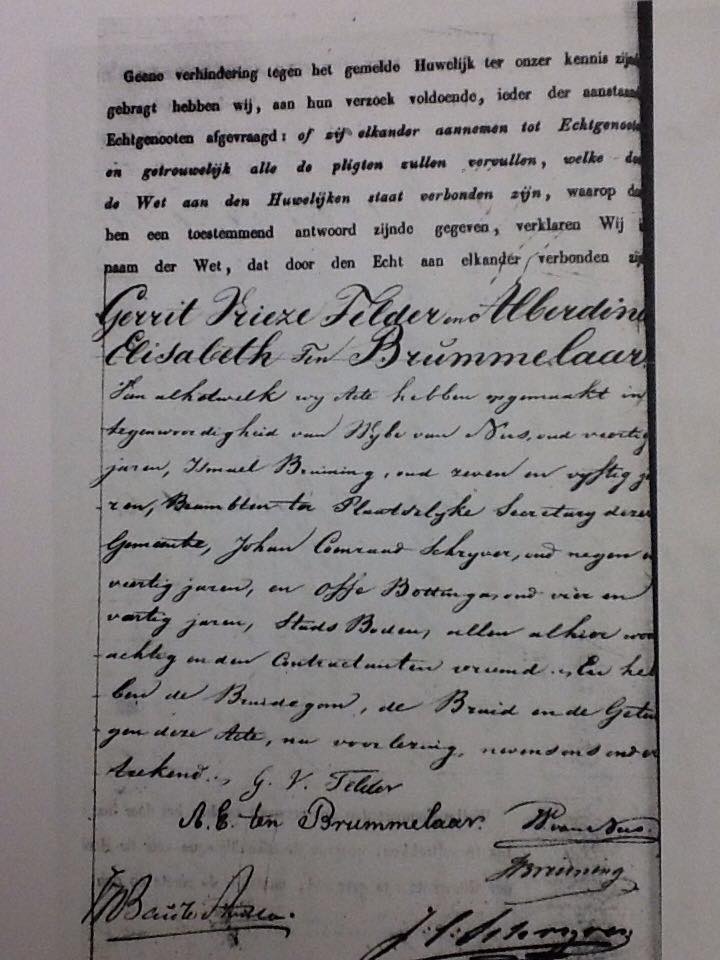 Geene verhindering tegen het gemelde Huwelijk ter onzer kennis zijn
gebragt hebben wij, aan hun verzoek voldoende, ieder der aanstaan
Echtgenooten afgevraagd: of zij elkander aannemen tot Echtgenoot
en getrouwelijk alle de pligten zullen vervullen, welke do
de Wet aan den Huwelijken staat verbonden zijn, waarop do
hen een toestemmend antwoord zijnde gegeven, verklaren Wij i
naam der Wet, dat door den Echt aan elkander verbonden zij
Gerrit Vrieze Telder en Alberdina
Elisabeth Ten Brummelaar.
Van alhetwelk wy Acte hebben opgemaakt in
tegenwoordigheid van Wybe van Nus, oud veertig
jaren, Ismael Bruining, oud zeven en vyftig ja
ren, Beambten ter Plaatselyke Secretary dezer
Gemeente, Johan Conraad Schryver, oud negen e
veertig jaren, en Offe Bottinga, oud vier en
veertig jaren, Stads Boden, allen alhier woo
achtig en den Contractanten vreemd. En heb
ben de Bruidegom, de Bruid en de Getui
gen deze Acte, na voorlezing, nevens ons onder
teekend.
G. V. Telder
A. E. ten Brummelaar.
W van Nus.
Bruining
J. C. Schryver